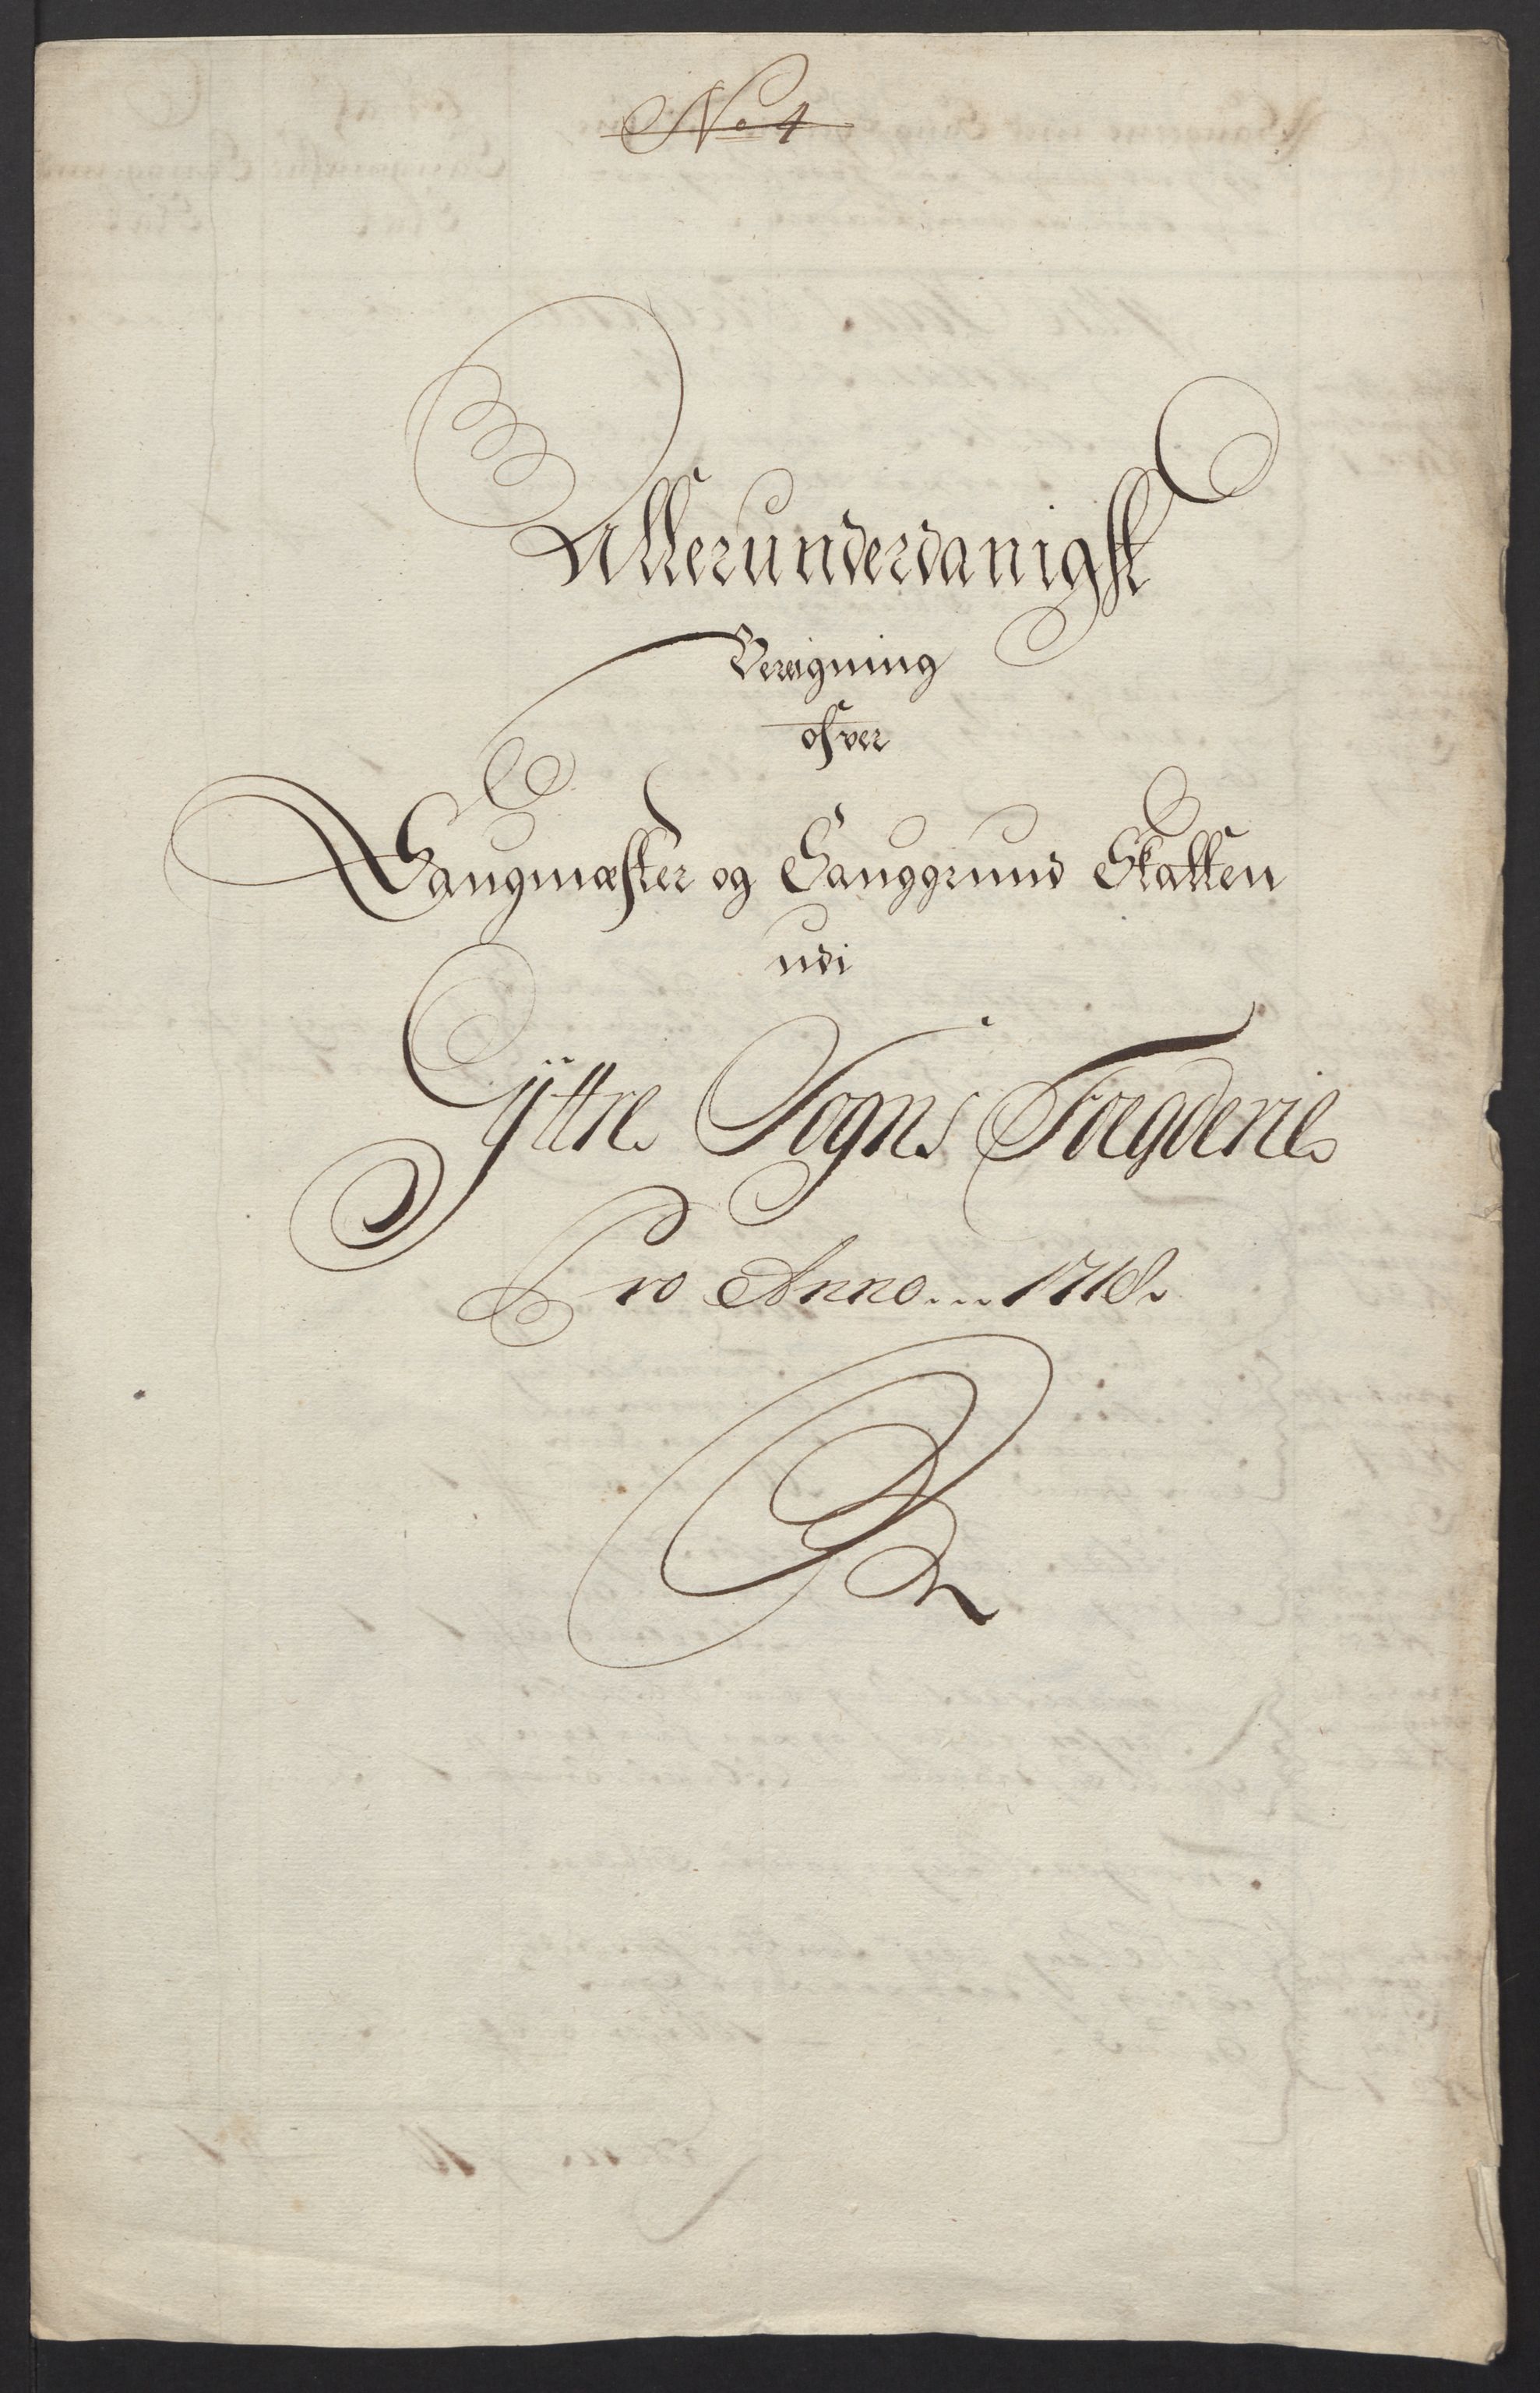 No 4
Allerunderdanigst
Beregning
ofver
Saugmæster og Sauggrund Skatten
udi
Ÿttre Sogns Foegderie
Pro Anno... 1718.